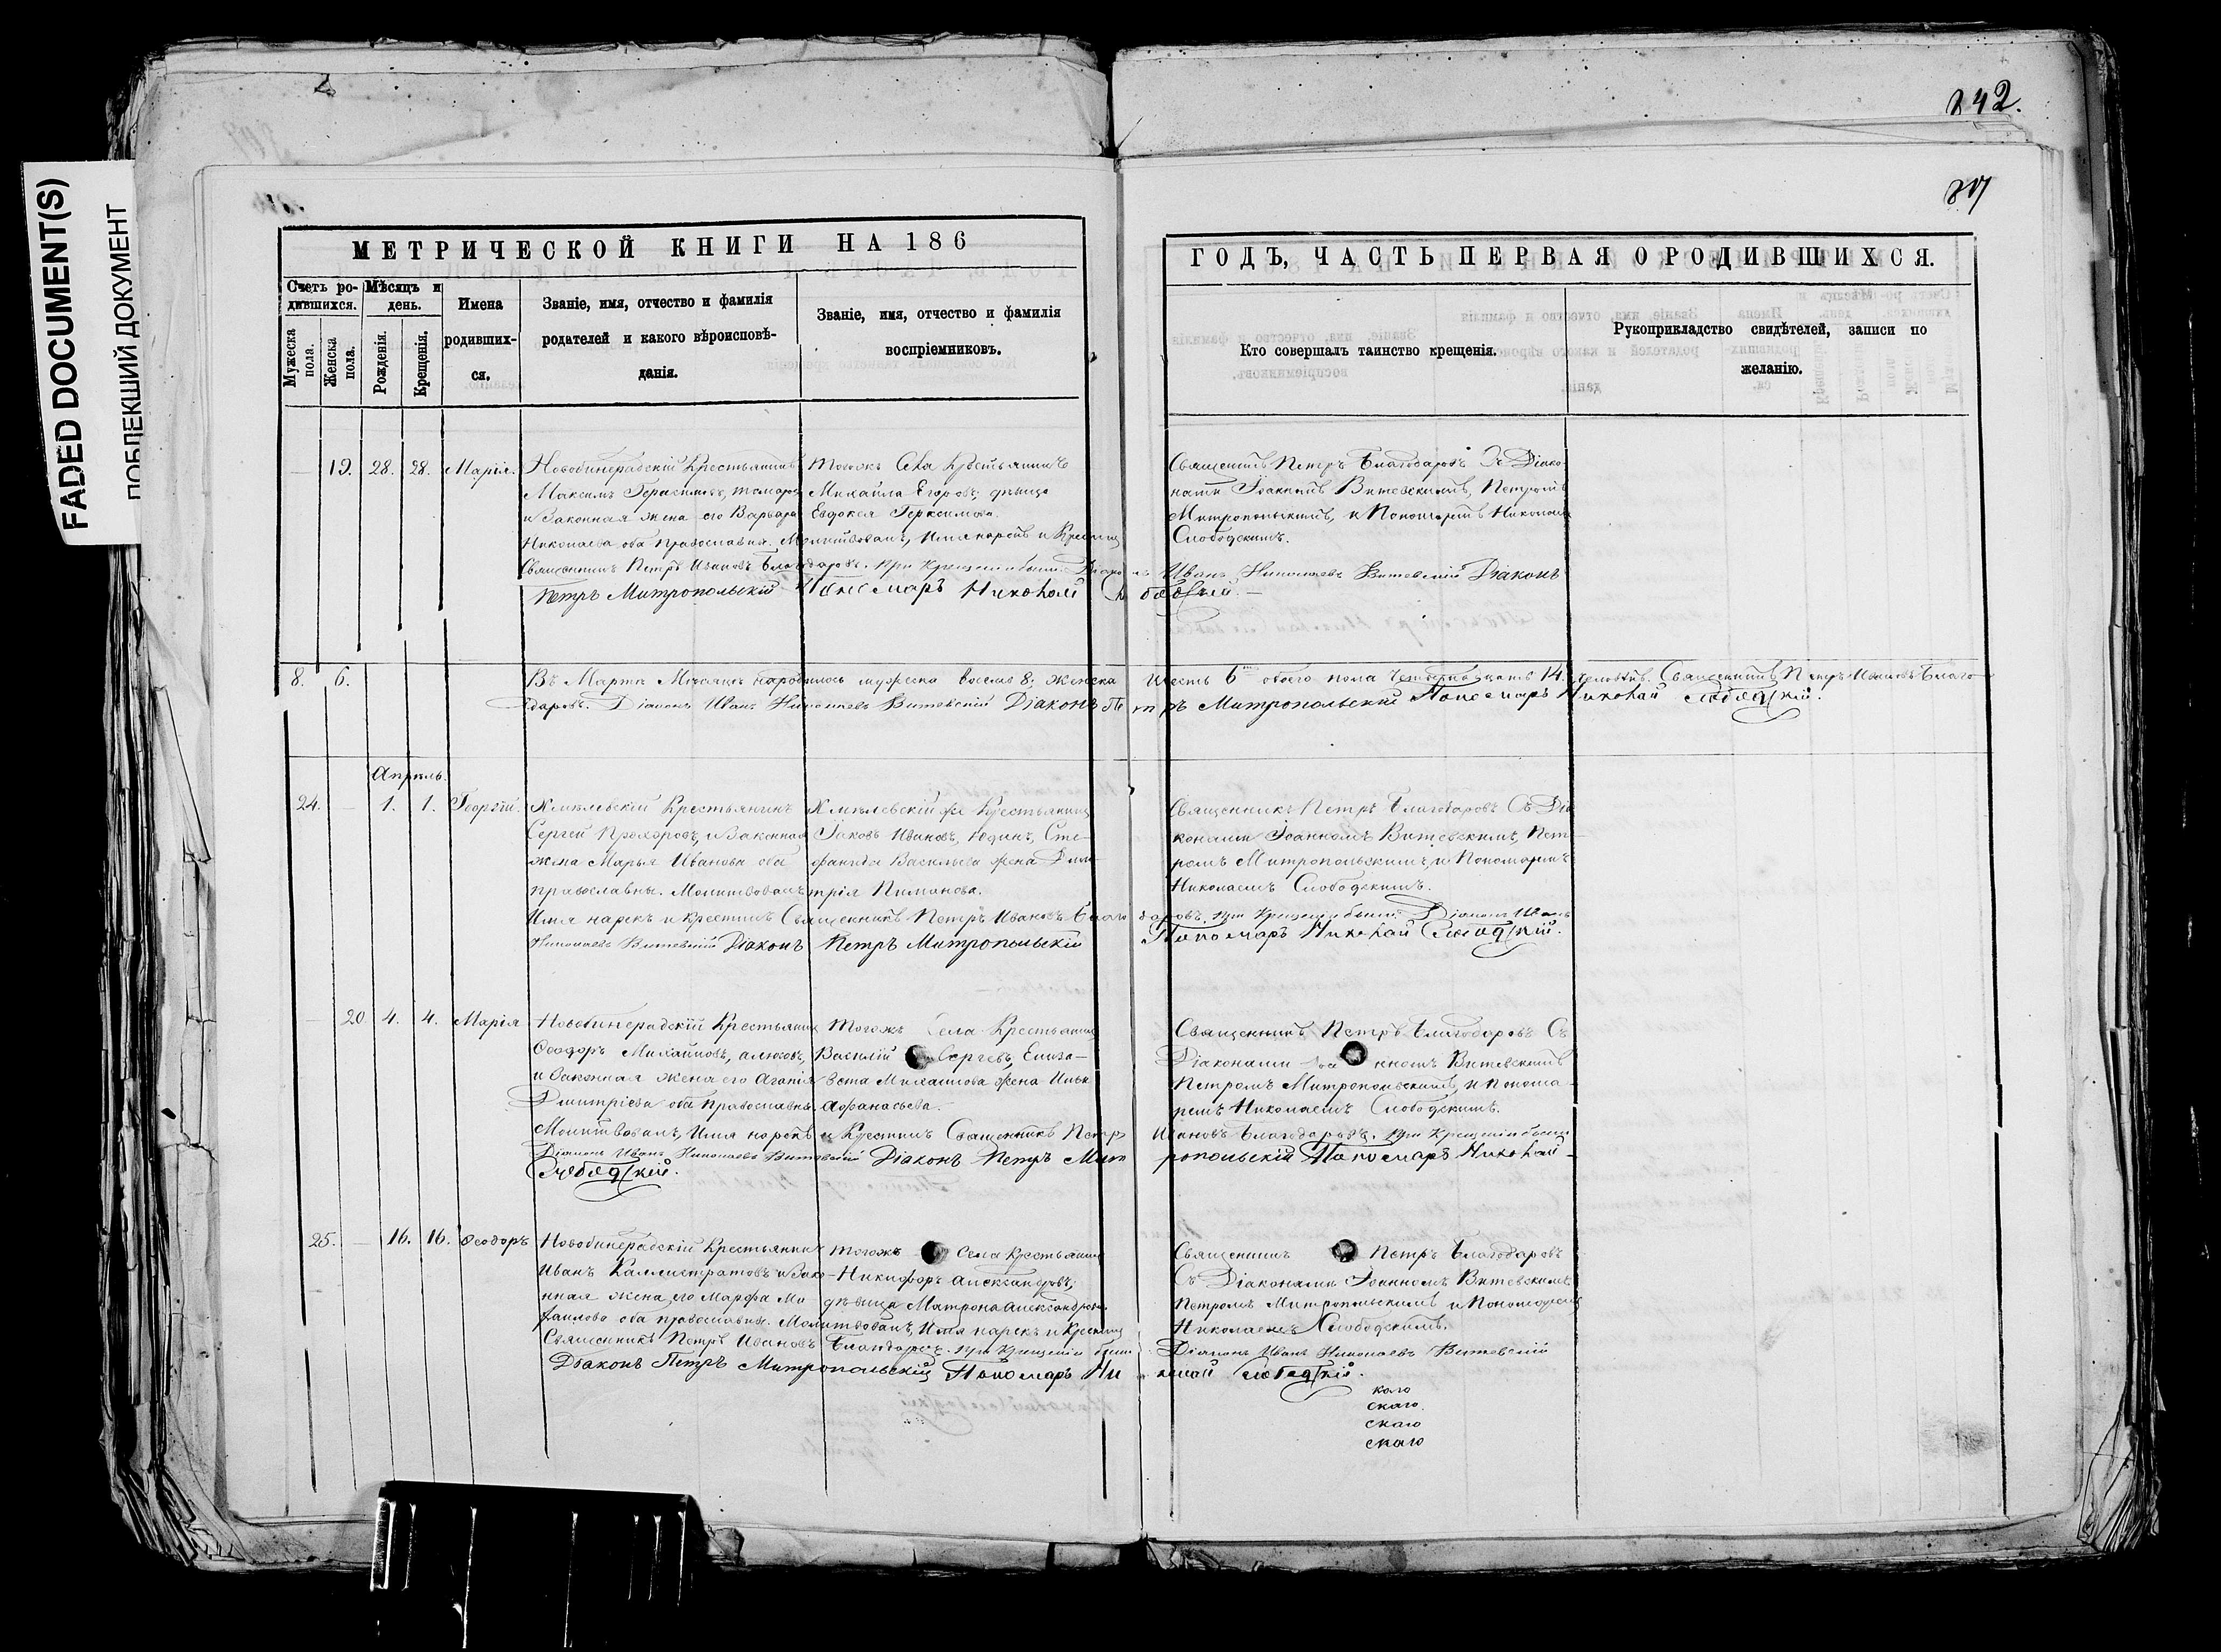 FADED DOCUMENT(S)
ПОБЛЕКШИЙ ДОКУМЕНТ
242.
МЕТРИЧЕСКОЙ КНИГИ НА 186
Счетъ родившихся.
Мужеска пола.
Женска пола.
Мѣсяцъ и день.
Рожденія.
Крещенія.
Имена родивших-
ся.
Званіе, имя, отчество и фамилія
родителей и какого вѣроисповѣ-
данія.
Званіе, имя, отчество и фамилія
воспріемниковъ.
ГОДЪ, ЧАСТЬ ПЕРВАЯ О РОДИВШИХСЯ.
Кто совершалъ таинство крещенія.
Рукоприкладство свидѣтелей, записи по
желанію.
19. 28. 28. Марія.
Крестьянинъ
Максимъ Герасимовъ
и Законная жена его Варвара
Николаева оба православна. Молитвовалъ, Имя нарекъ и Крестилъ
Священникъ Петръ Ивановъ Благодаровъ. При Крещеніи были: Діаконъ Иванъ Николаевъ Витевскій Діаконъ
Петръ Митропольскій Пономарь Николай Слободскій.
Тогожъ Села Крестьянинъ
Михаила Егоровъ, дѣвица
Евдокея Герасимова.
Священникъ Петръ Благодаровъ Съ Діако-
нами Іоанномъ Витевскимъ, Петромъ
Митропольскимъ, и Пономаремъ Николаемъ
Слободскимъ.
8. 6.
Въ Мартѣ Мѣсяцѣ народилось мужеска восемь 8; женска шесть 6 обоего пола четырнадцать 14. человѣкъ. Священникъ Петръ Ивановъ Благо-
даровъ. Діаконъ Иванъ Николаевъ Витевскій Діаконъ Петръ Митропольскій Пономарь Николай Слободскій.
Апрѣль.
24. — 1. 1. Георгій.
Крестьянинъ
Сергей Прохоровъ, и Законная
жена Марья Иванова оба
православны. Молитвовалъ
Имя нарекъ и крестилъ Священникъ Петръ Ивановъ Благодаровъ. При Крещеніи были: Діаконъ Иванъ
Николаевъ Витевскій Діаконъ Петръ Митропольскій Пономарь Николай Слободскій.
Крестьянинъ
Іаковъ Ивановъ, Сте-
фанида Васильева жена Дми-
трія Пиманова.
Священникъ Петръ Благодаровъ Съ Діа-
конами Іоанномъ Витевскимъ, Пет-
ромъ Митропольскимъ, и Пономаремъ
Николаемъ Слободскимъ.
20 4. 4. Марія
Крестьянинъ
Ѳеодоръ Михайловъ,
и Законная жена его Агапія
Дмитріева оба православны.
Молитвовалъ, Имя нарекъ и Крестилъ Священникъ Петръ Ивановъ Благодаровъ. При Крещеніи были
Діаконъ Иванъ Николаевъ Витевскій Діаконъ Петръ Митропольскій Пономарь Николай
Слободскій.
Тогожъ Села Крестьянинъ
Василій Сергевъ, Елиза-
вета Михаилова жена Ильи
Афанасьева.
Священникъ Петръ Благодаровъ Съ
Діаконами Іоанномъ Витевскимъ
Петромъ Митропольскимъ, и Понома-
ремъ Николаемъ Слободскимъ.
25. — 16. 16. Ѳеодоръ
Крестьянинъ
Иванъ Каллистратовъ и Зако-
нная жена его Марфа Ми-
хаилова оба православны. Молитвовалъ, Имя нарекъ и Крестилъ
Священникъ Петръ Ивановъ Благодаровъ. При Крещеніи были Діаконъ Иванъ Николаевъ Витевскій
Діаконъ Петръ Митропольскій Пономарь Николай Слободскій.
Тогожъ Села Крестьянинъ
Никифоръ Александровъ,
дѣвица Матрона Александрова.
Священникъ Петръ Благодаровъ
Съ Діаконами Іоанномъ Витевскимъ
Петромъ Митропольскимъ и Пономаремъ
Николаемъ Слободскимъ.
каго
скаго
скаго
скаго